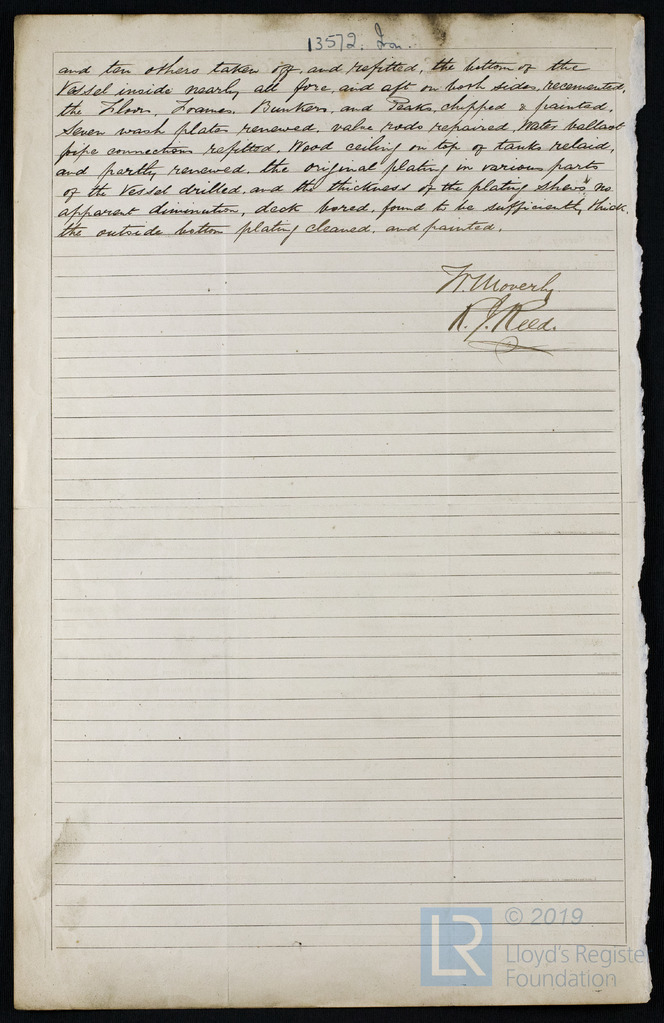 13572. Ion.
and ten others taken off, and refitted, the bottom of the
Vessel inside nearly all fore, and aft on both sides, recemented,
the Floors, Frames, Bunkers, and Peaks, chipped & painted,
Seven wash plates renewed, valve rods repaired, Water ballast
pipe connections refitted, Wood ceiling on top of tanks relaid,
and partly renewed, the original plating in various parts
of the Vessel drilled, and the thickness of the plating shews no
apparent diminution, deck bored, found to be sufficiently thick,
the outside bottom plating cleaned, and painted.
W. Moverly
R. J. Reed.
LR
© 2019
Lloyd's Registe
Foundation